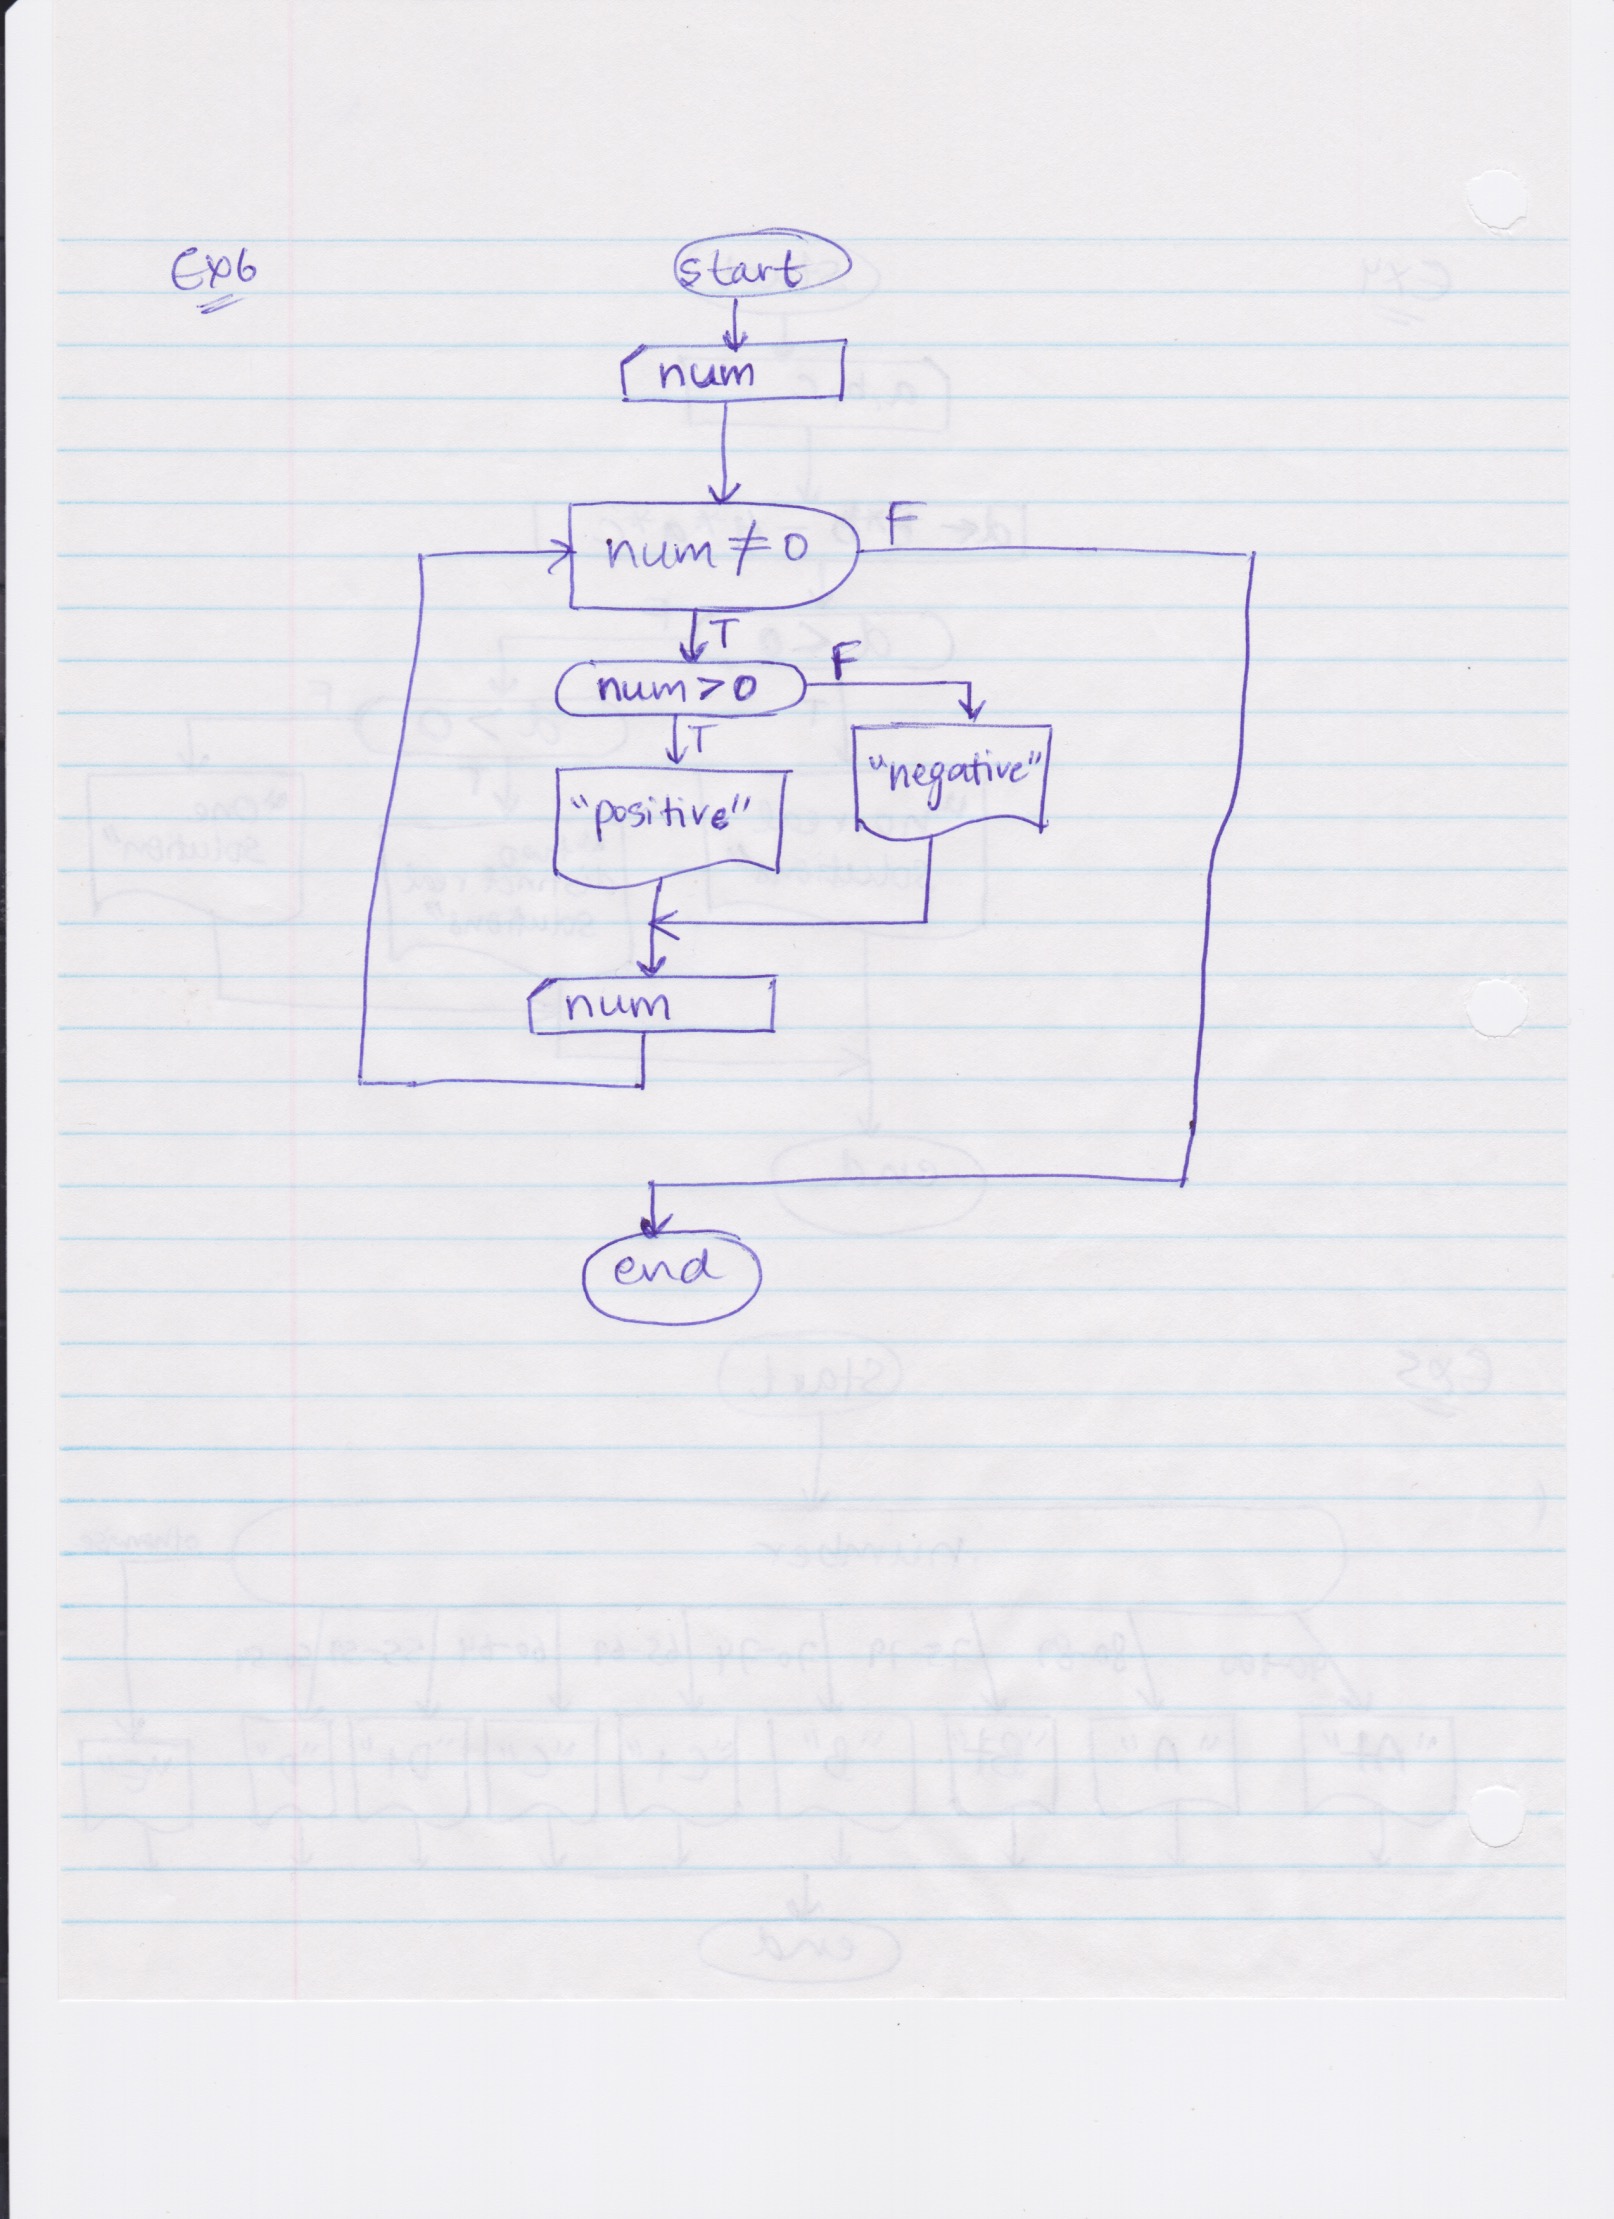 Ex6
start
num
num ≠ 0 F
T
num > 0 F
T
"negative"
"positive"
num
end